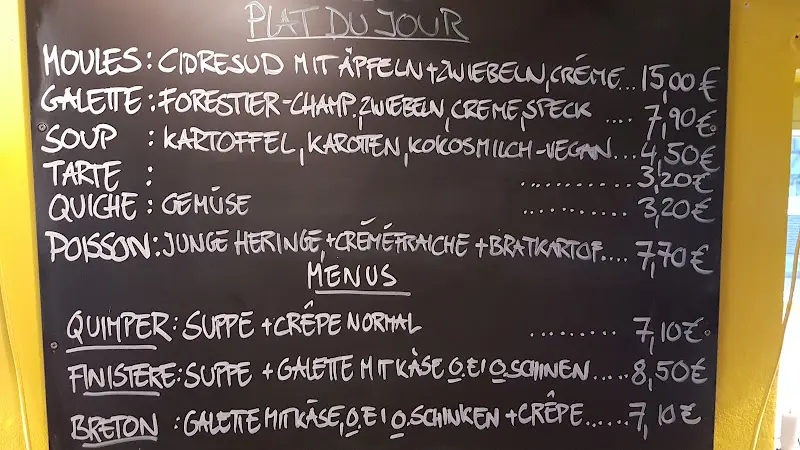 PLAT DU JOUR
MOULES: CIDRESUD MIT ÄPFELN+ZWIEBELN, CRÉME... 15,00 €
GALETTE: FORESTIER-CHAMP., ZWIEBELN, CREME, SPECK .... 7,90€
SOUP : KARTOFFEL, KAROTTEN, KOKOSMILCH-VEGAN... 4,50€
TARTE : ........... 3,20€
QUICHE: GEMÜSE ........... 3,20€
POISSON: JUNGE HERINGE, +CRÉMÉFRAICHE +BRATKARTOF.... 7,70€
MENUS
QUIMPER: SUPPE +CRÊPE NORMAL ......... 7,10€
FINISTERE: SUPPE + GALETTE MIT KÄSE O. EI O. SCHINEN..... 8,50€
BRETON : GALETTE MIT KÄSE, O. EI O. SCHINKEN + CRÊPE ...... 7,10€